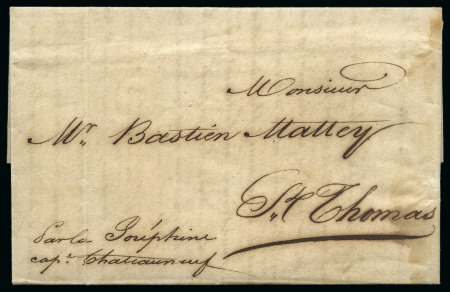 Monsieur
Mr. Bastién Mattey
St Thomas
Par la Joséphine
capne. Chateauneuf